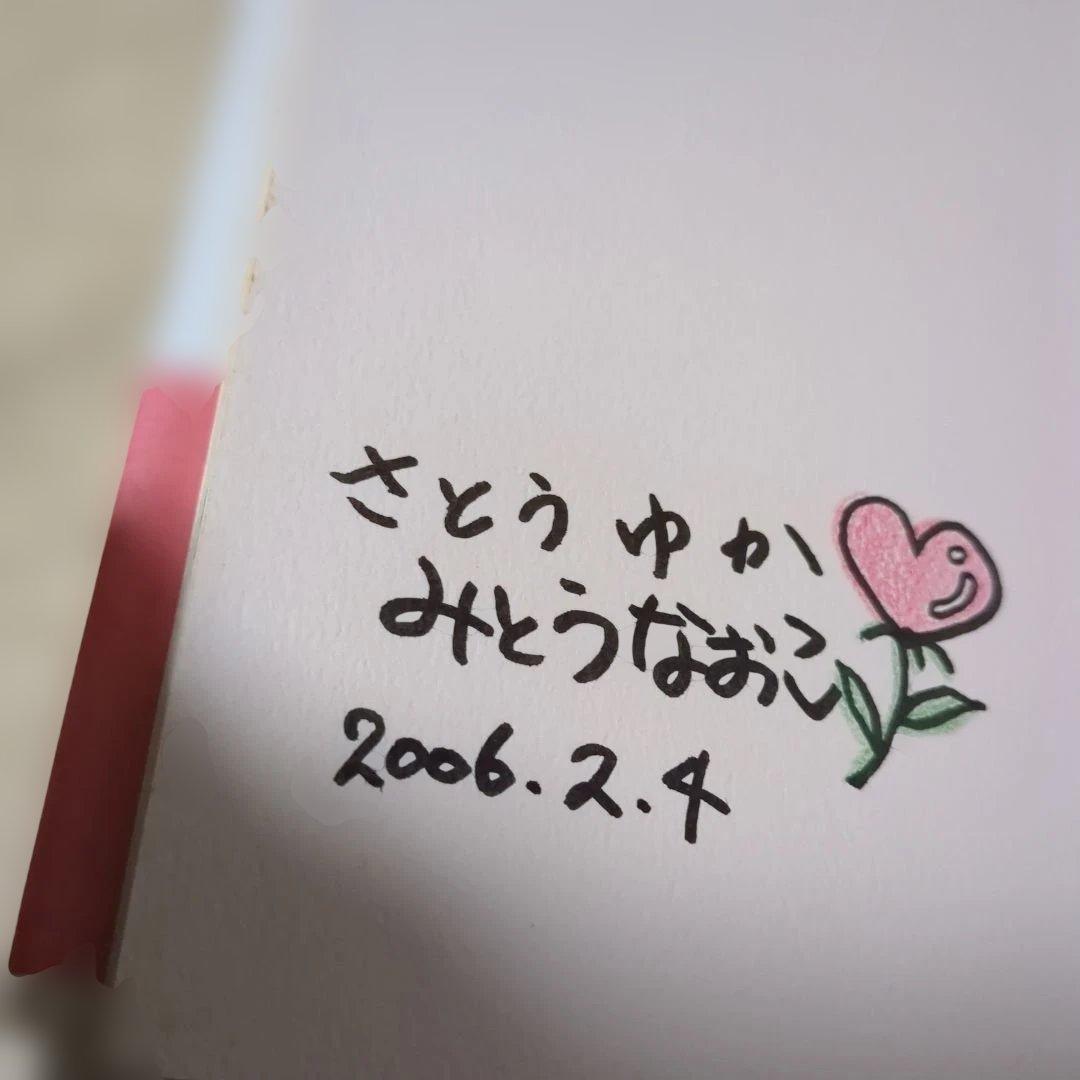 さとう ゆか
みとうなおこ
2006.2.4